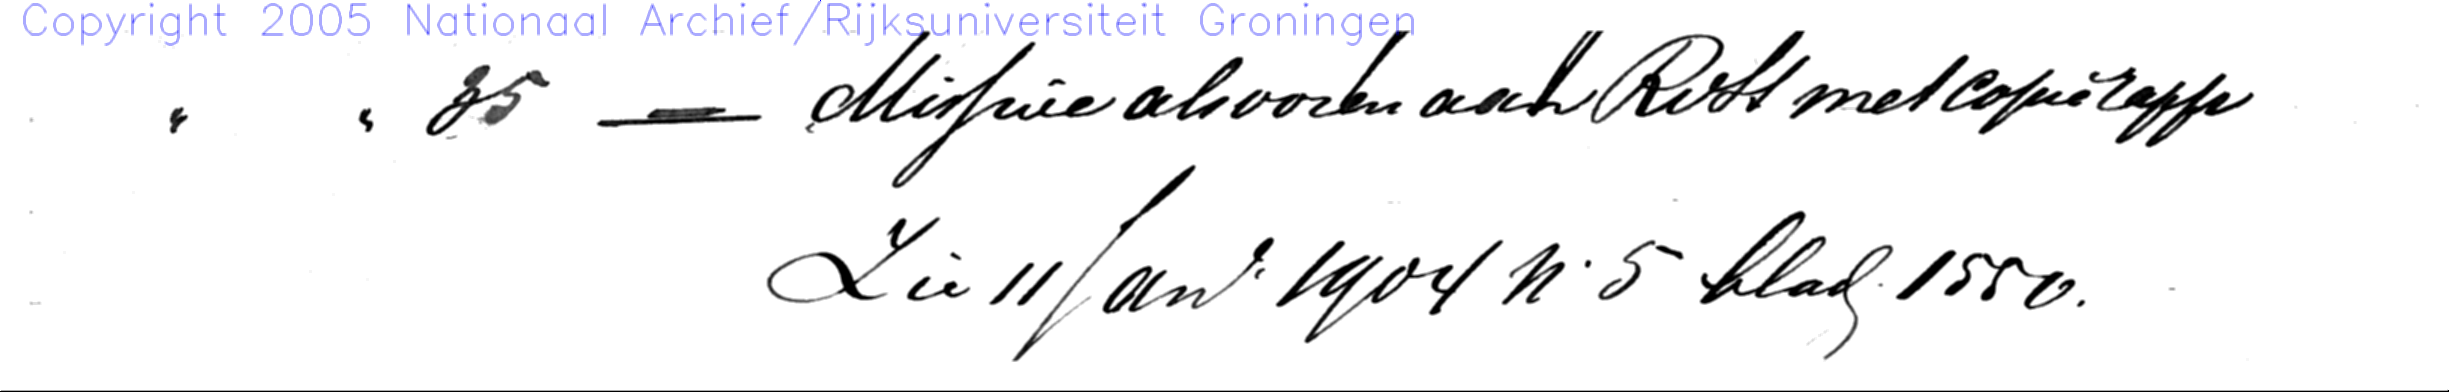 Copyright 2005 Nationaal Archief/Rijksuniversiteit Groningen
" " 35 — Missive alsvoren aan RvSt met copie rapp
Zie 11 Janr. 1904 N. 5 bladz. 1550.